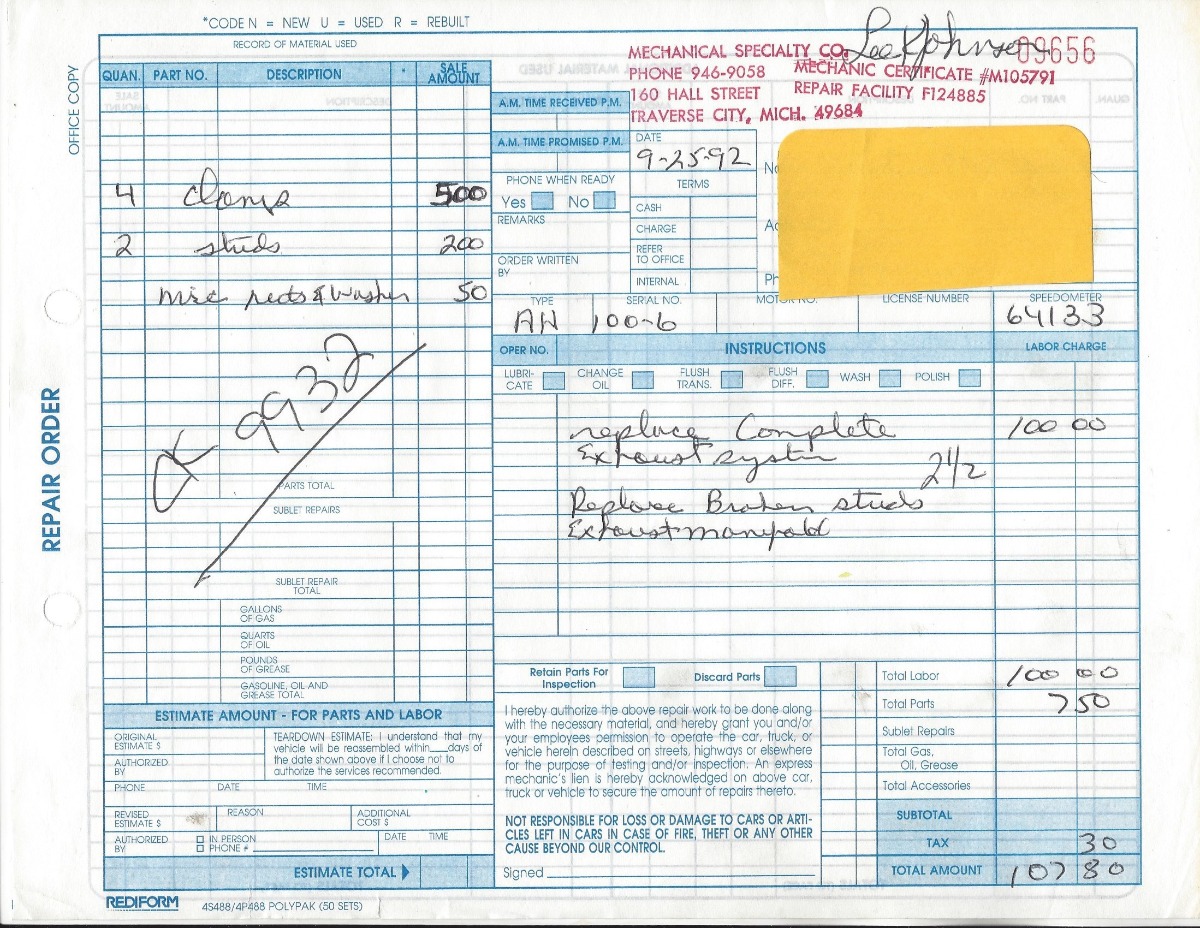 *CODE N = NEW U = USED R = REBUILT
RECORD OF MATERIAL USED
OFFICE COPY
REPAIR ORDER
QUAN. PART NO. DESCRIPTION * SALE AMOUNT
4 clamps 500
2 studs 200
Misc nuts & washer 50
CK 9932
PARTS TOTAL
SUBLET REPAIRS
SUBLET REPAIR TOTAL
GALLONS OF GAS
QUARTS OF OIL
POUNDS OF GREASE
GASOLINE, OIL AND GREASE TOTAL
ESTIMATE AMOUNT - FOR PARTS AND LABOR
ORIGINAL ESTIMATE $
AUTHORIZED BY
TEARDOWN ESTIMATE: I understand that my
vehicle will be reassembled within___days of
the date shown above if I choose not to
authorize the services recommended.
PHONE DATE TIME
REVISED ESTIMATE $ REASON ADDITIONAL COST $
AUTHORIZED BY IN PERSON PHONE # DATE TIME
ESTIMATE TOTAL
REDIFORM 4S488/4P488 POLYPAK (50 SETS)
Lee Johnson
09656
MECHANICAL SPECIALTY CO.
PHONE 946-9058 MECHANIC CERTIFICATE #M105791
160 HALL STREET REPAIR FACILITY F124885
TRAVERSE CITY, MICH. 49684
A.M. TIME RECEIVED P.M.
A.M. TIME PROMISED P.M.
DATE
9-25-92
PHONE WHEN READY
Yes No
REMARKS
ORDER WRITTEN BY
TERMS
CASH
CHARGE
REFER TO OFFICE
INTERNAL
TYPE SERIAL NO. MOTOR NO. LICENSE NUMBER SPEEDOMETER
AH 100-6 64133
OPER NO. INSTRUCTIONS LABOR CHARGE
LUBRI-CATE CHANGE OIL FLUSH TRANS. FLUSH DIFF. WASH POLISH
replace Complete 100 00
Exhaust system 2 1/2
Replace Broken studs
Exhaust manifold
Retain Parts For Inspection Discard Parts
I hereby authorize the above repair work to be done along
with the necessary material, and hereby grant you and/or
your employees permission to operate the car, truck, or
vehicle herein described on streets, highways or elsewhere
for the purpose of testing and/or inspection. An express
mechanic's lien is hereby acknowledged on above car,
truck or vehicle to secure the amount of repairs thereto.
NOT RESPONSIBLE FOR LOSS OR DAMAGE TO CARS OR ARTI-
CLES LEFT IN CARS IN CASE OF FIRE, THEFT OR ANY OTHER
CAUSE BEYOND OUR CONTROL.
Signed
Total Labor 100 00
Total Parts 7 50
Sublet Repairs
Total Gas, Oil, Grease
Total Accessories
SUBTOTAL
TAX 30
TOTAL AMOUNT 107 80